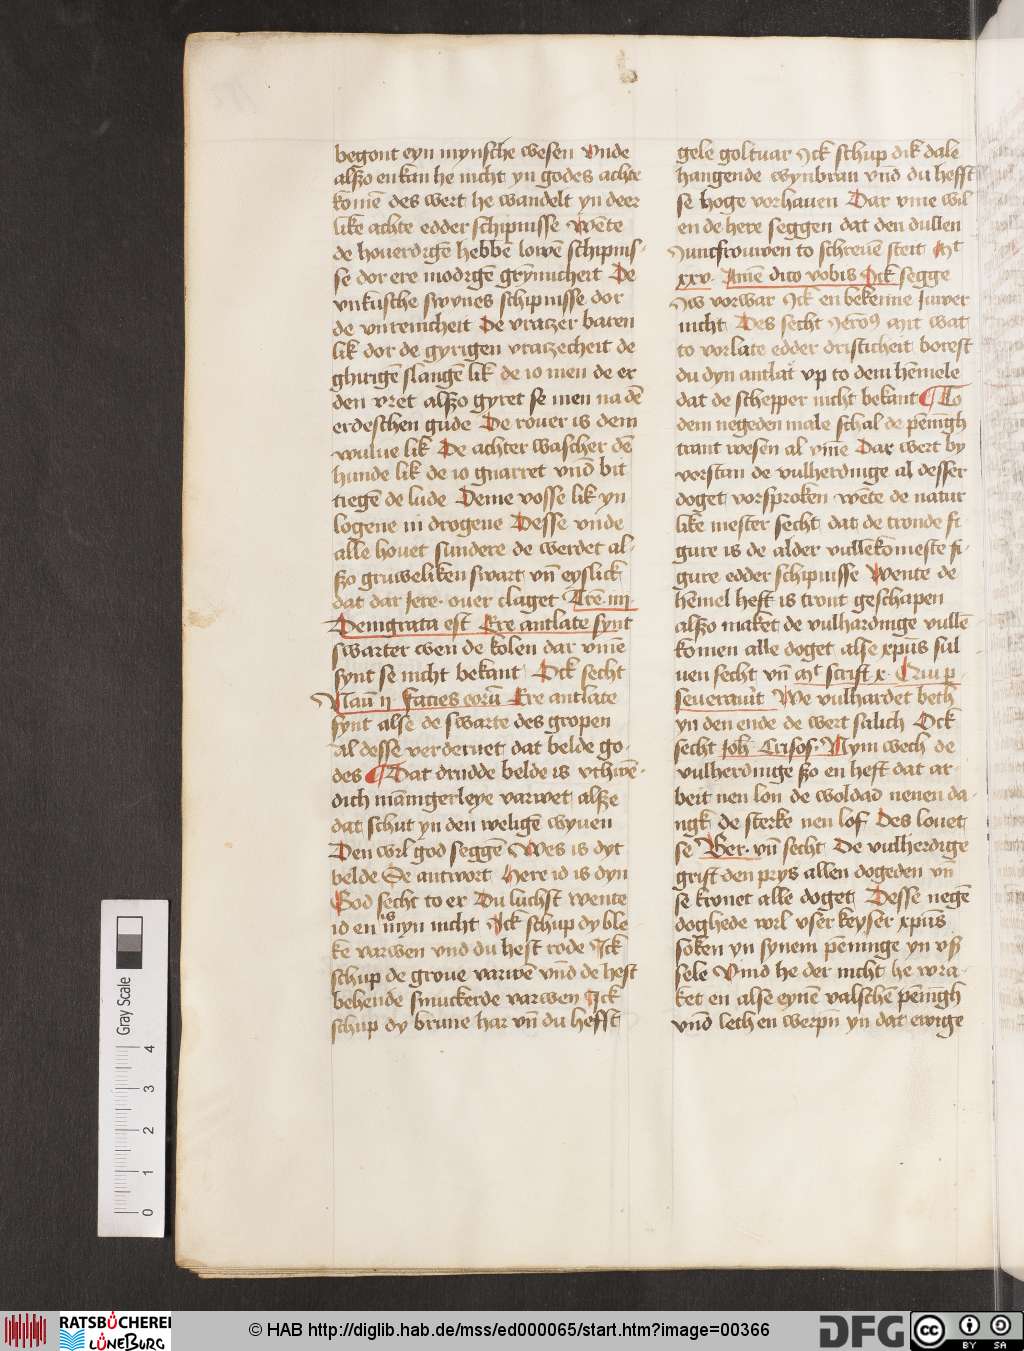 begont eyn mynsche wesen vnde
alßo en kan he nicht yn godes achte
komē des wert he wandelt yn deer
like achte edder schipnisse wēte
de houerdigē hebbē lowē schipnis-
se dor ere modigē grymicheit De
vnkusche swynes schipnisse dor
de vnrenicheit De vratzer baren
lik dor de gyrigen vratzecheit de
ghirigē slangē lik de io men de er
den vret alßo gyret se men na dē
erdeschen gude De rouer is dem
wulue lik De achter wascher dē
hunde lik de io gnarret vnd bit
tiegē de lude Deme vosse lik yn
logene in drogene Desse vnde
alle houet sundere de werdet al-
ßo gruweliken swart vn̄ eyslick
dat dar Jere. ouer claget Trē. iiii.
Denigrata est Ere antlate synt
swarter wen de kolen dar vmē
synt se nicht bekant Ock secht
Naū ii. facies eorū Ere antlate
synt alse de swarte des gropen
al desse verderuet dat belde go-
des Dat drudde belde is vthwē-
dich mānigerleye varwet alße
dat schut yn den weligē wyuen
Den wil god seggē Wes is dyt
belde Se antwort Here id is dyn
God secht to er Du luchst wente
id en is myn nicht Ick schup dy ble-
ke varwen vnd du hest rode Ick
schup de groue varwē vnd de hest
behende smuckerde varwen Ick
schup dy brune har vn̄ du hefst
gele goltuar Ick schup dik dale
hangende wynbran vnd du hefst
se hoge vorhauen Dar vme wil
en de here seggen dat den dullen
Juncfrouwen to screuē steit Mt
xxv. Amē dico vobis Ick segge
Iw vorwar Ick en bekenne Juwer
nicht Des secht Ierōꝰ wat
to vorlate edder dristicheit borest
du dyn antlat vp to dem hēmele
dat de schepper nicht bekant To
dem negeden male schal de pēnigh
trant wesen al vme Dar wert by
vorstan de vulherdinge al desser
doget vorsproken wēte de natur
like mester secht dat de tronde fi-
gure is de alder vullekomeste fi-
gure edder schipnisse Wente de
hēmel heft is tront geschapen
alßo maket de vulhardinge vullē
komen alle doget alse xp̄us sul
uen secht vn̄ mt scrift x. Qui p̄
seuerauit We vulhardet beth
yn den ende de wert salich Ock
secht Joh Crisos. Nym wech de
vulherdinge ßo en heft dat ar-
beit nen lon de woldad nenen da-
ngk de sterke nen lof Des louet
se Ber. vn̄ secht De vulherdige
grift den prys allen dogeden vn̄
se kronet alle doget Desse negē
doghede wil vser keyser xp̄us
soken yn synem pēninge yn vser
sele Vind he der nicht he wra-
ket en alse eynē valschē pēnigh
vnd leth en werpn yn dat ewige
Gray Scale
4
3
2
1
0
RATSBÜCHEREI
LÜNEBURG
© HAB http://diglib.hab.de/mss/ed000065/start.htm?image=00366
DFG
cc
BY SA